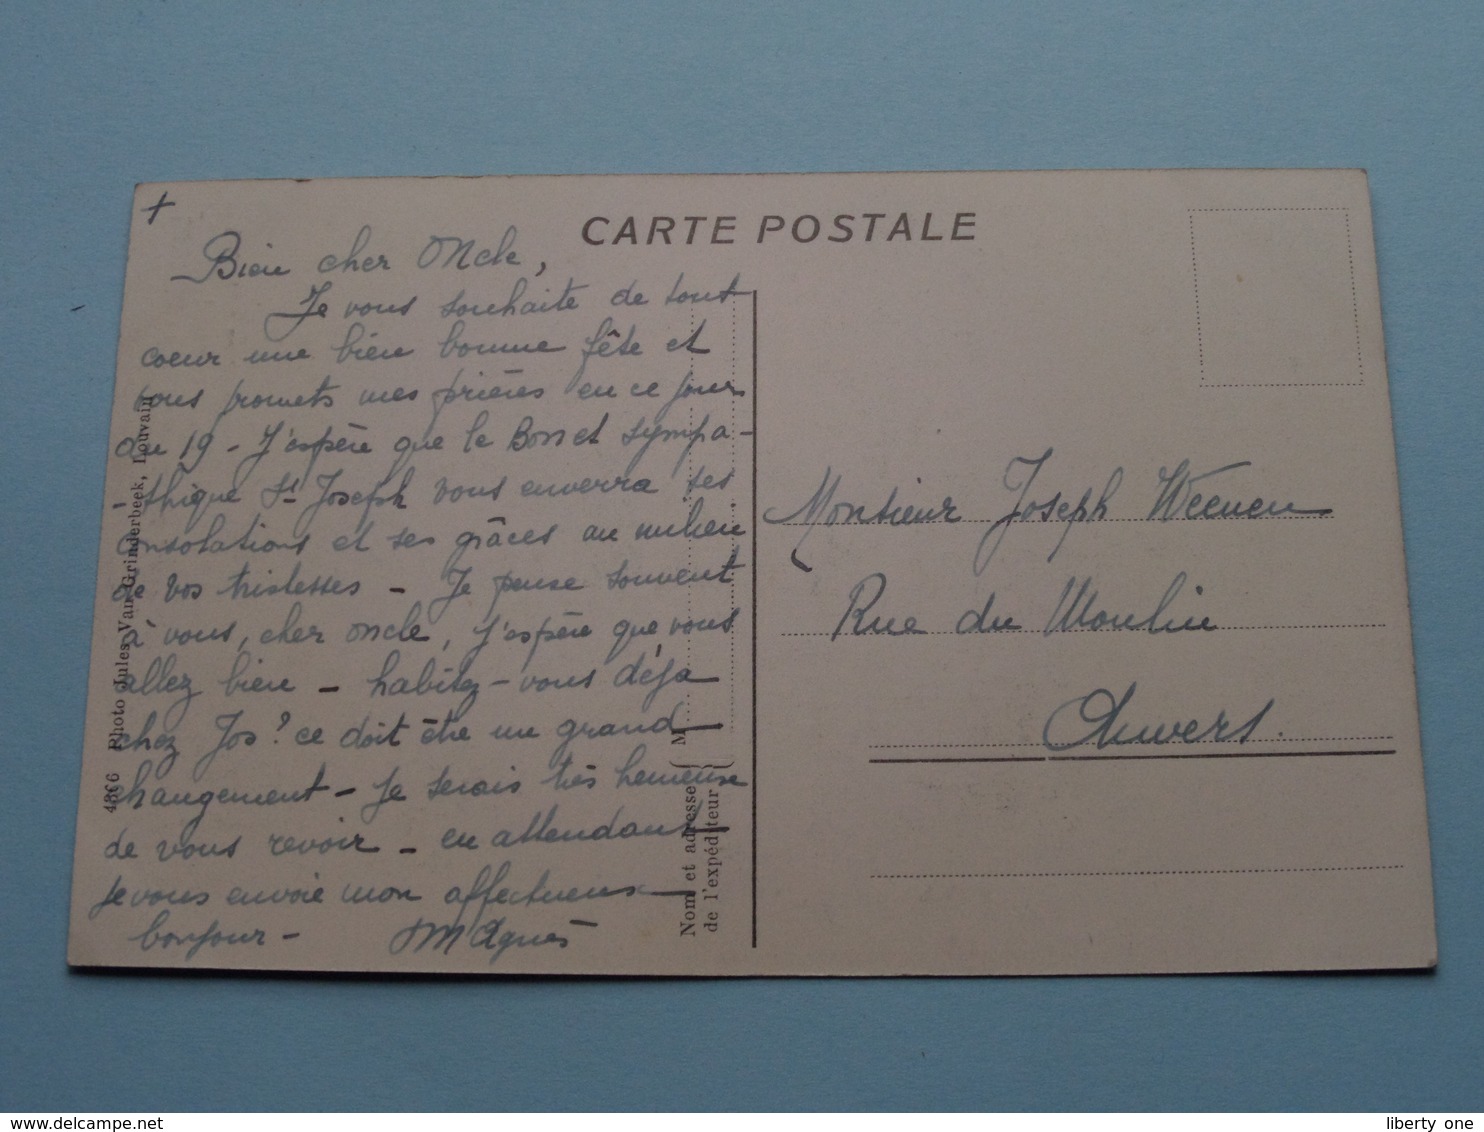 +
CARTE POSTALE
Bien cher Oncle,
Je vous souhaite de tout
coeur une bien bonne fête et
vous promets mes prières en ce jour
du 19 - J'espère que le Bon et sympa-
thique St Joseph vous enverra ses
consolations et ses grâces au milieu
de vos tristesses - Je pense souvent
à vous, cher oncle, j'espère que vous
allez bien - habitez-vous déja
chez Jos? ce doit être un grand
changement - je serais très heureuse
de vous revoir - en attendant
je vous envoie mon affectueux
bonjour - M Agnès
4866 Photo Jules Van Grinderbeek, Louvain
Nom et adresse
de l'expéditeur
M
Monsieur Joseph Weenen
Rue du Moulin
Anvers.
delcampe.net
liberty one